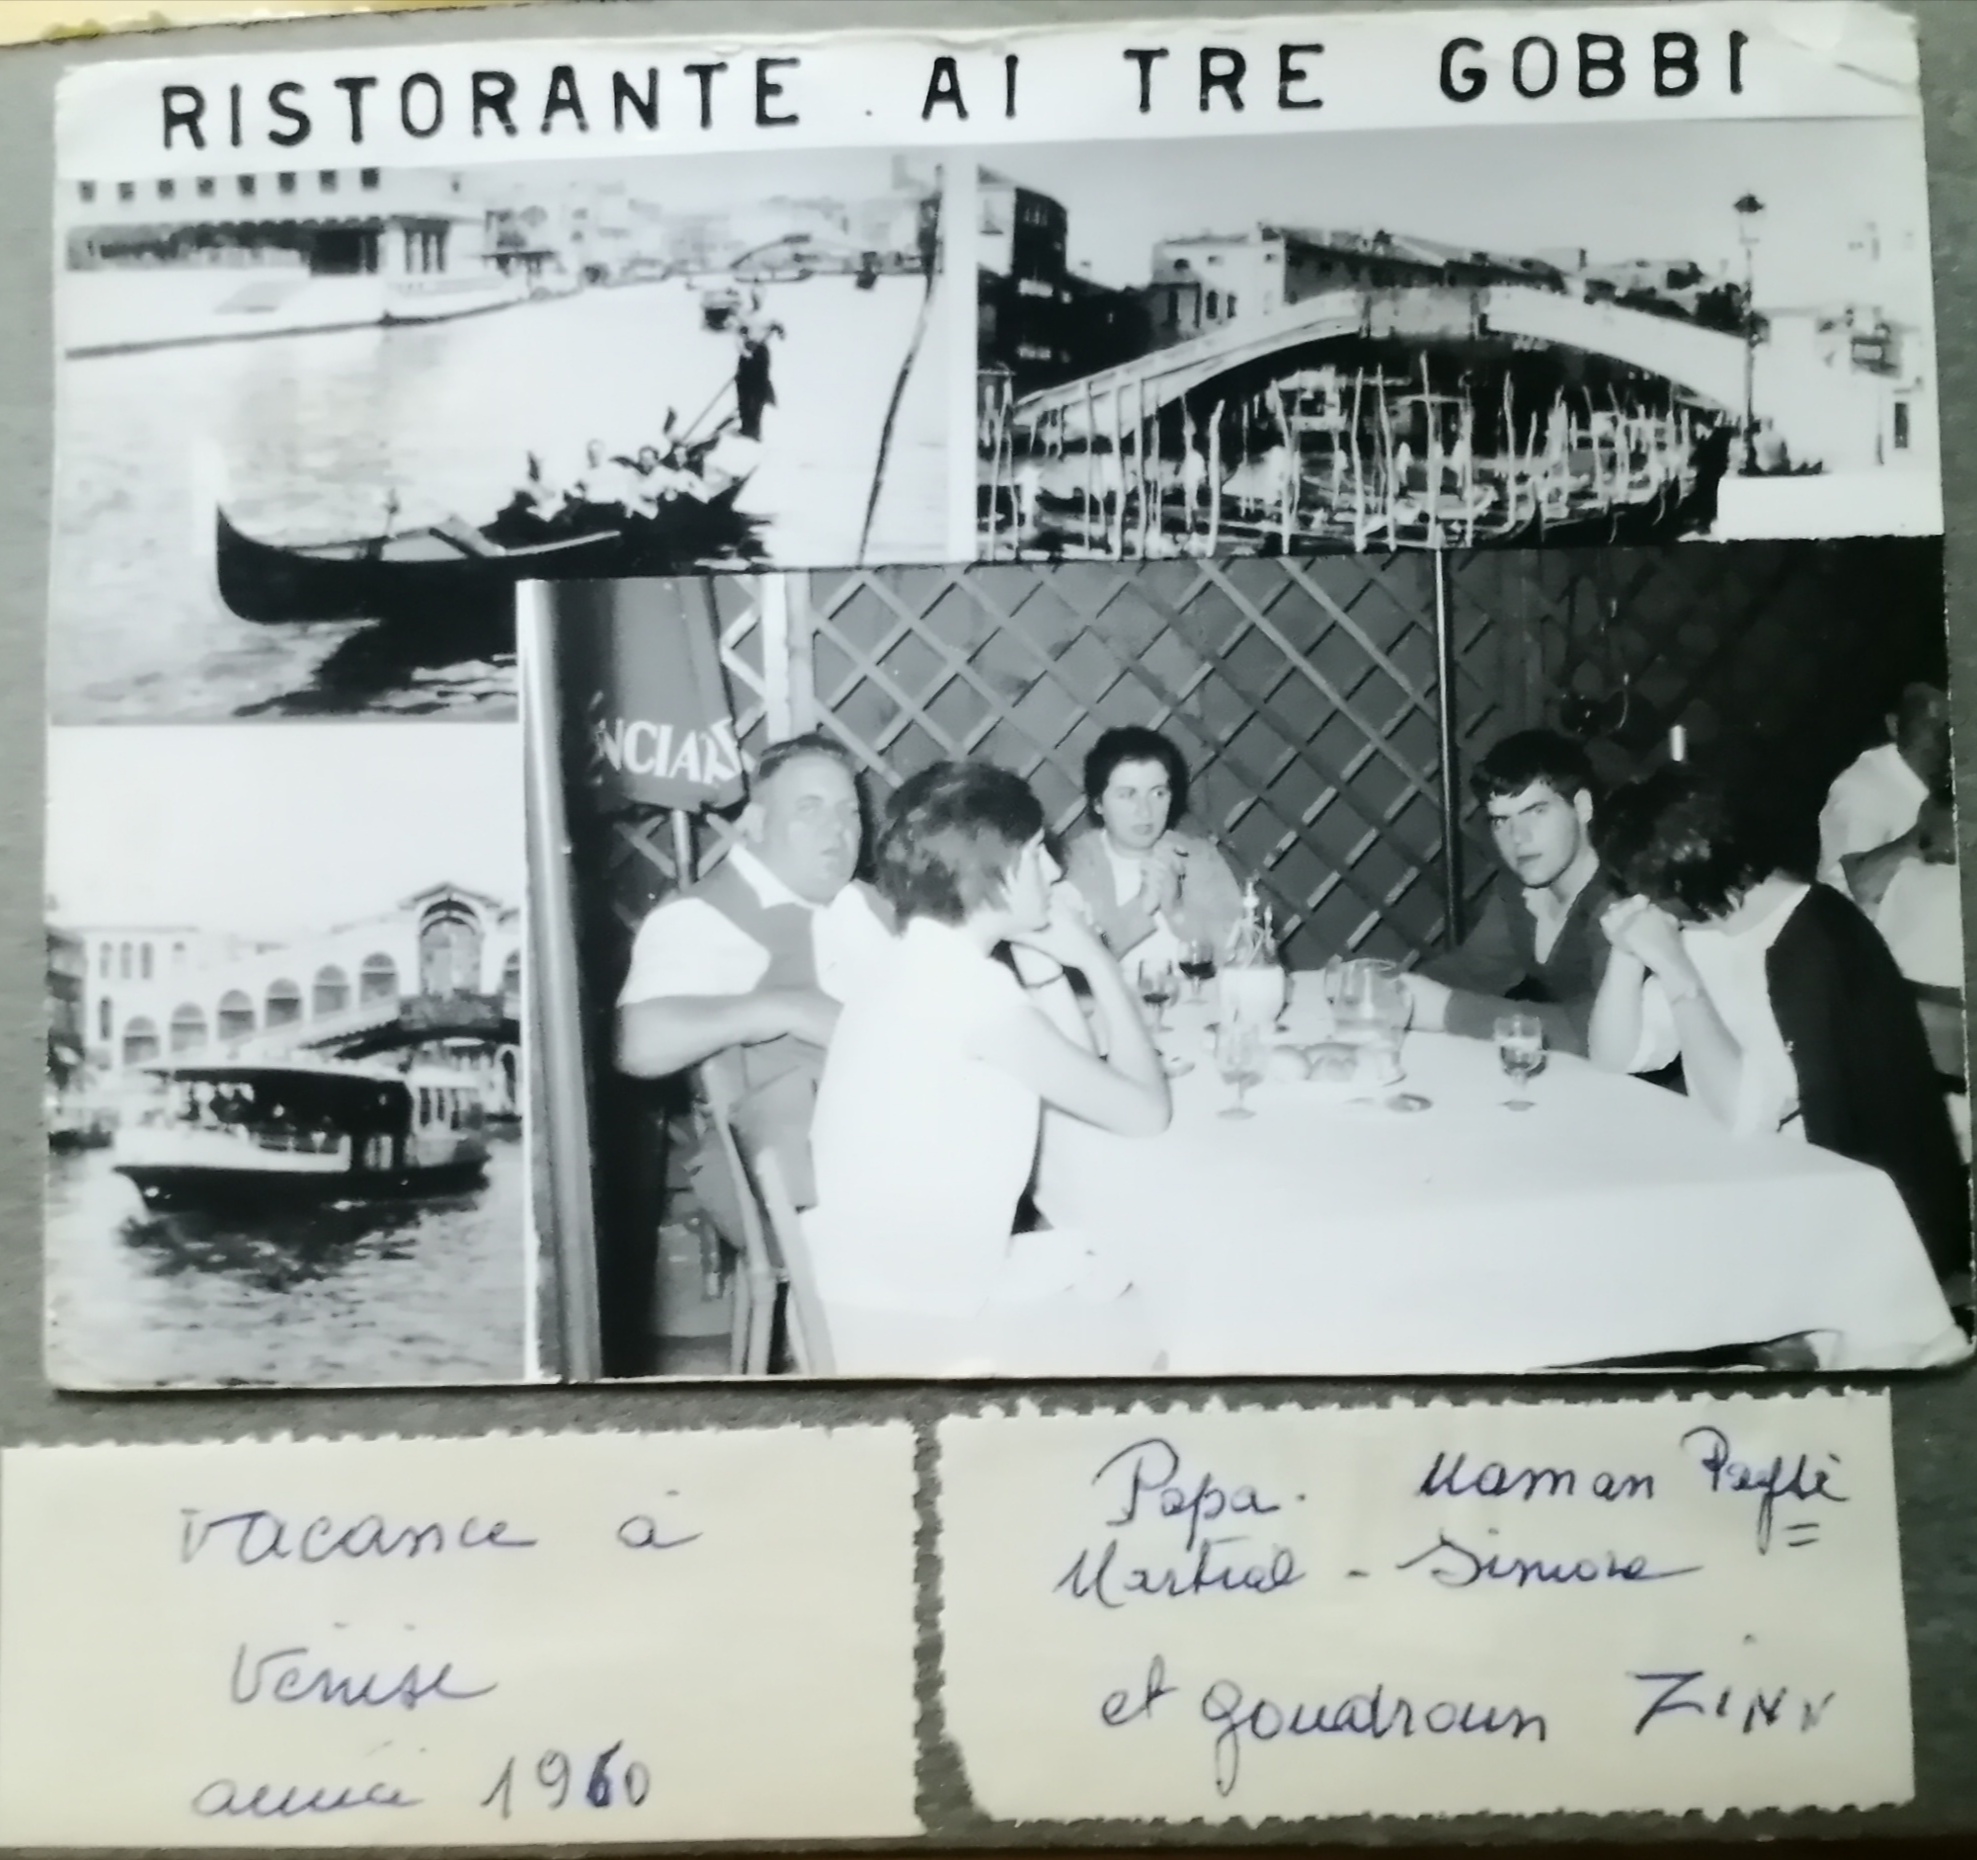 RISTORANTE AI TRE GOBBI
NCIAR
vacance à
Venise
année 1960
Papa. Maman
Martial - Simone
et goudroun ZINN